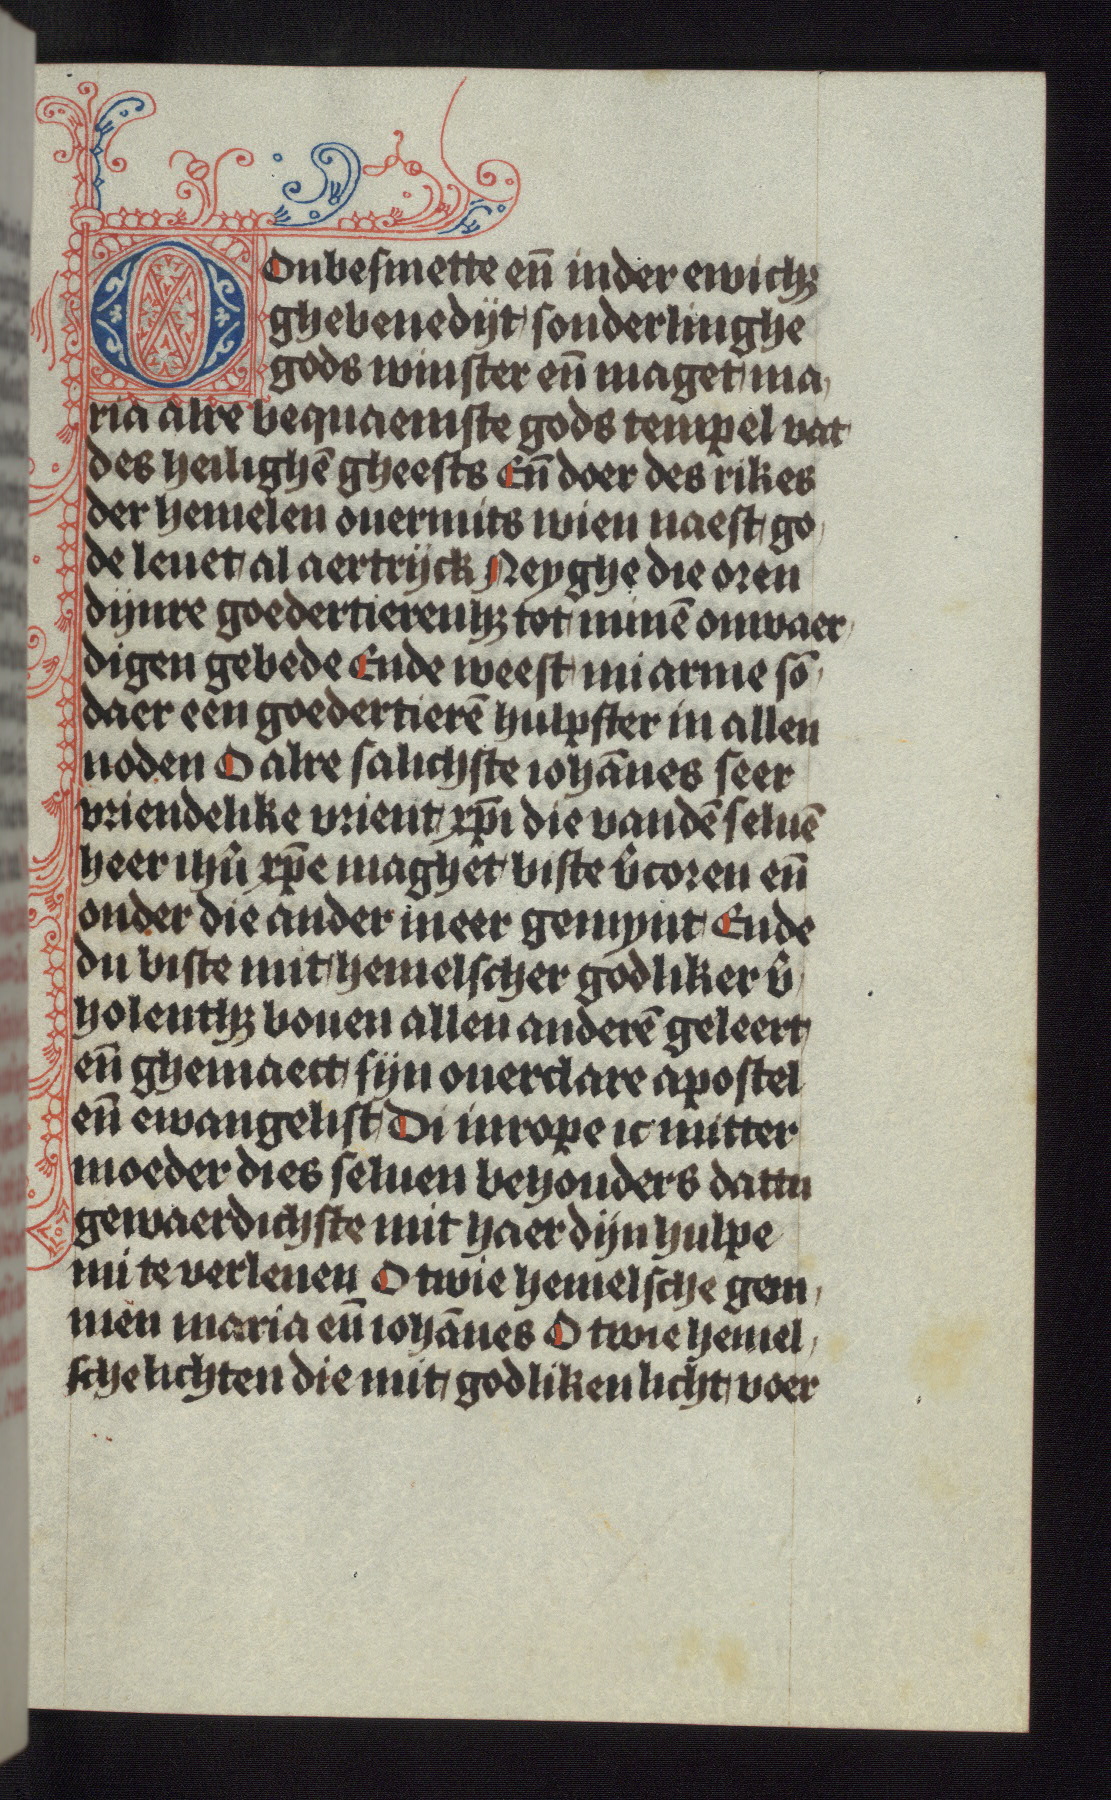 O Onbesmette eñ inder ewichꝫ
ghebenedijt sonderlinghe
gods winster eñ maget ma,
ria alre bequaemste gods tempel vat
des heilighē gheests Eñ doer des rikes
der hemelen ouermits wien naest go,
de leuet al aertrijck Neyghe die oren
dijnre goedertierenhꝫ tot minē onwaer,
digen gebede Ende weest mi arme sō,
daer een goedertierē hulpster in allen
noden O alre salichste iohānes seer
vriendelike vrient xp̄i die vandē seluē
heer ihū xp̄e maghet biste v̄coren eñ
onder die ander meer gemynt Ende
du biste mit hemelscher godliker v̄
holenthꝫ bouen allen anderē geleert
eñ ghemaect sijn ouerclare apostel
eñ ewangelist Di inrope ic mitter
moeder dies seluen behouders dattu
gewaerdichste mit haer dijn hulpe
mi te verlenen O twie hemelsche gem,
men maria eñ iohānes O twie hemel,
sche lichten die mit godliken licht voer